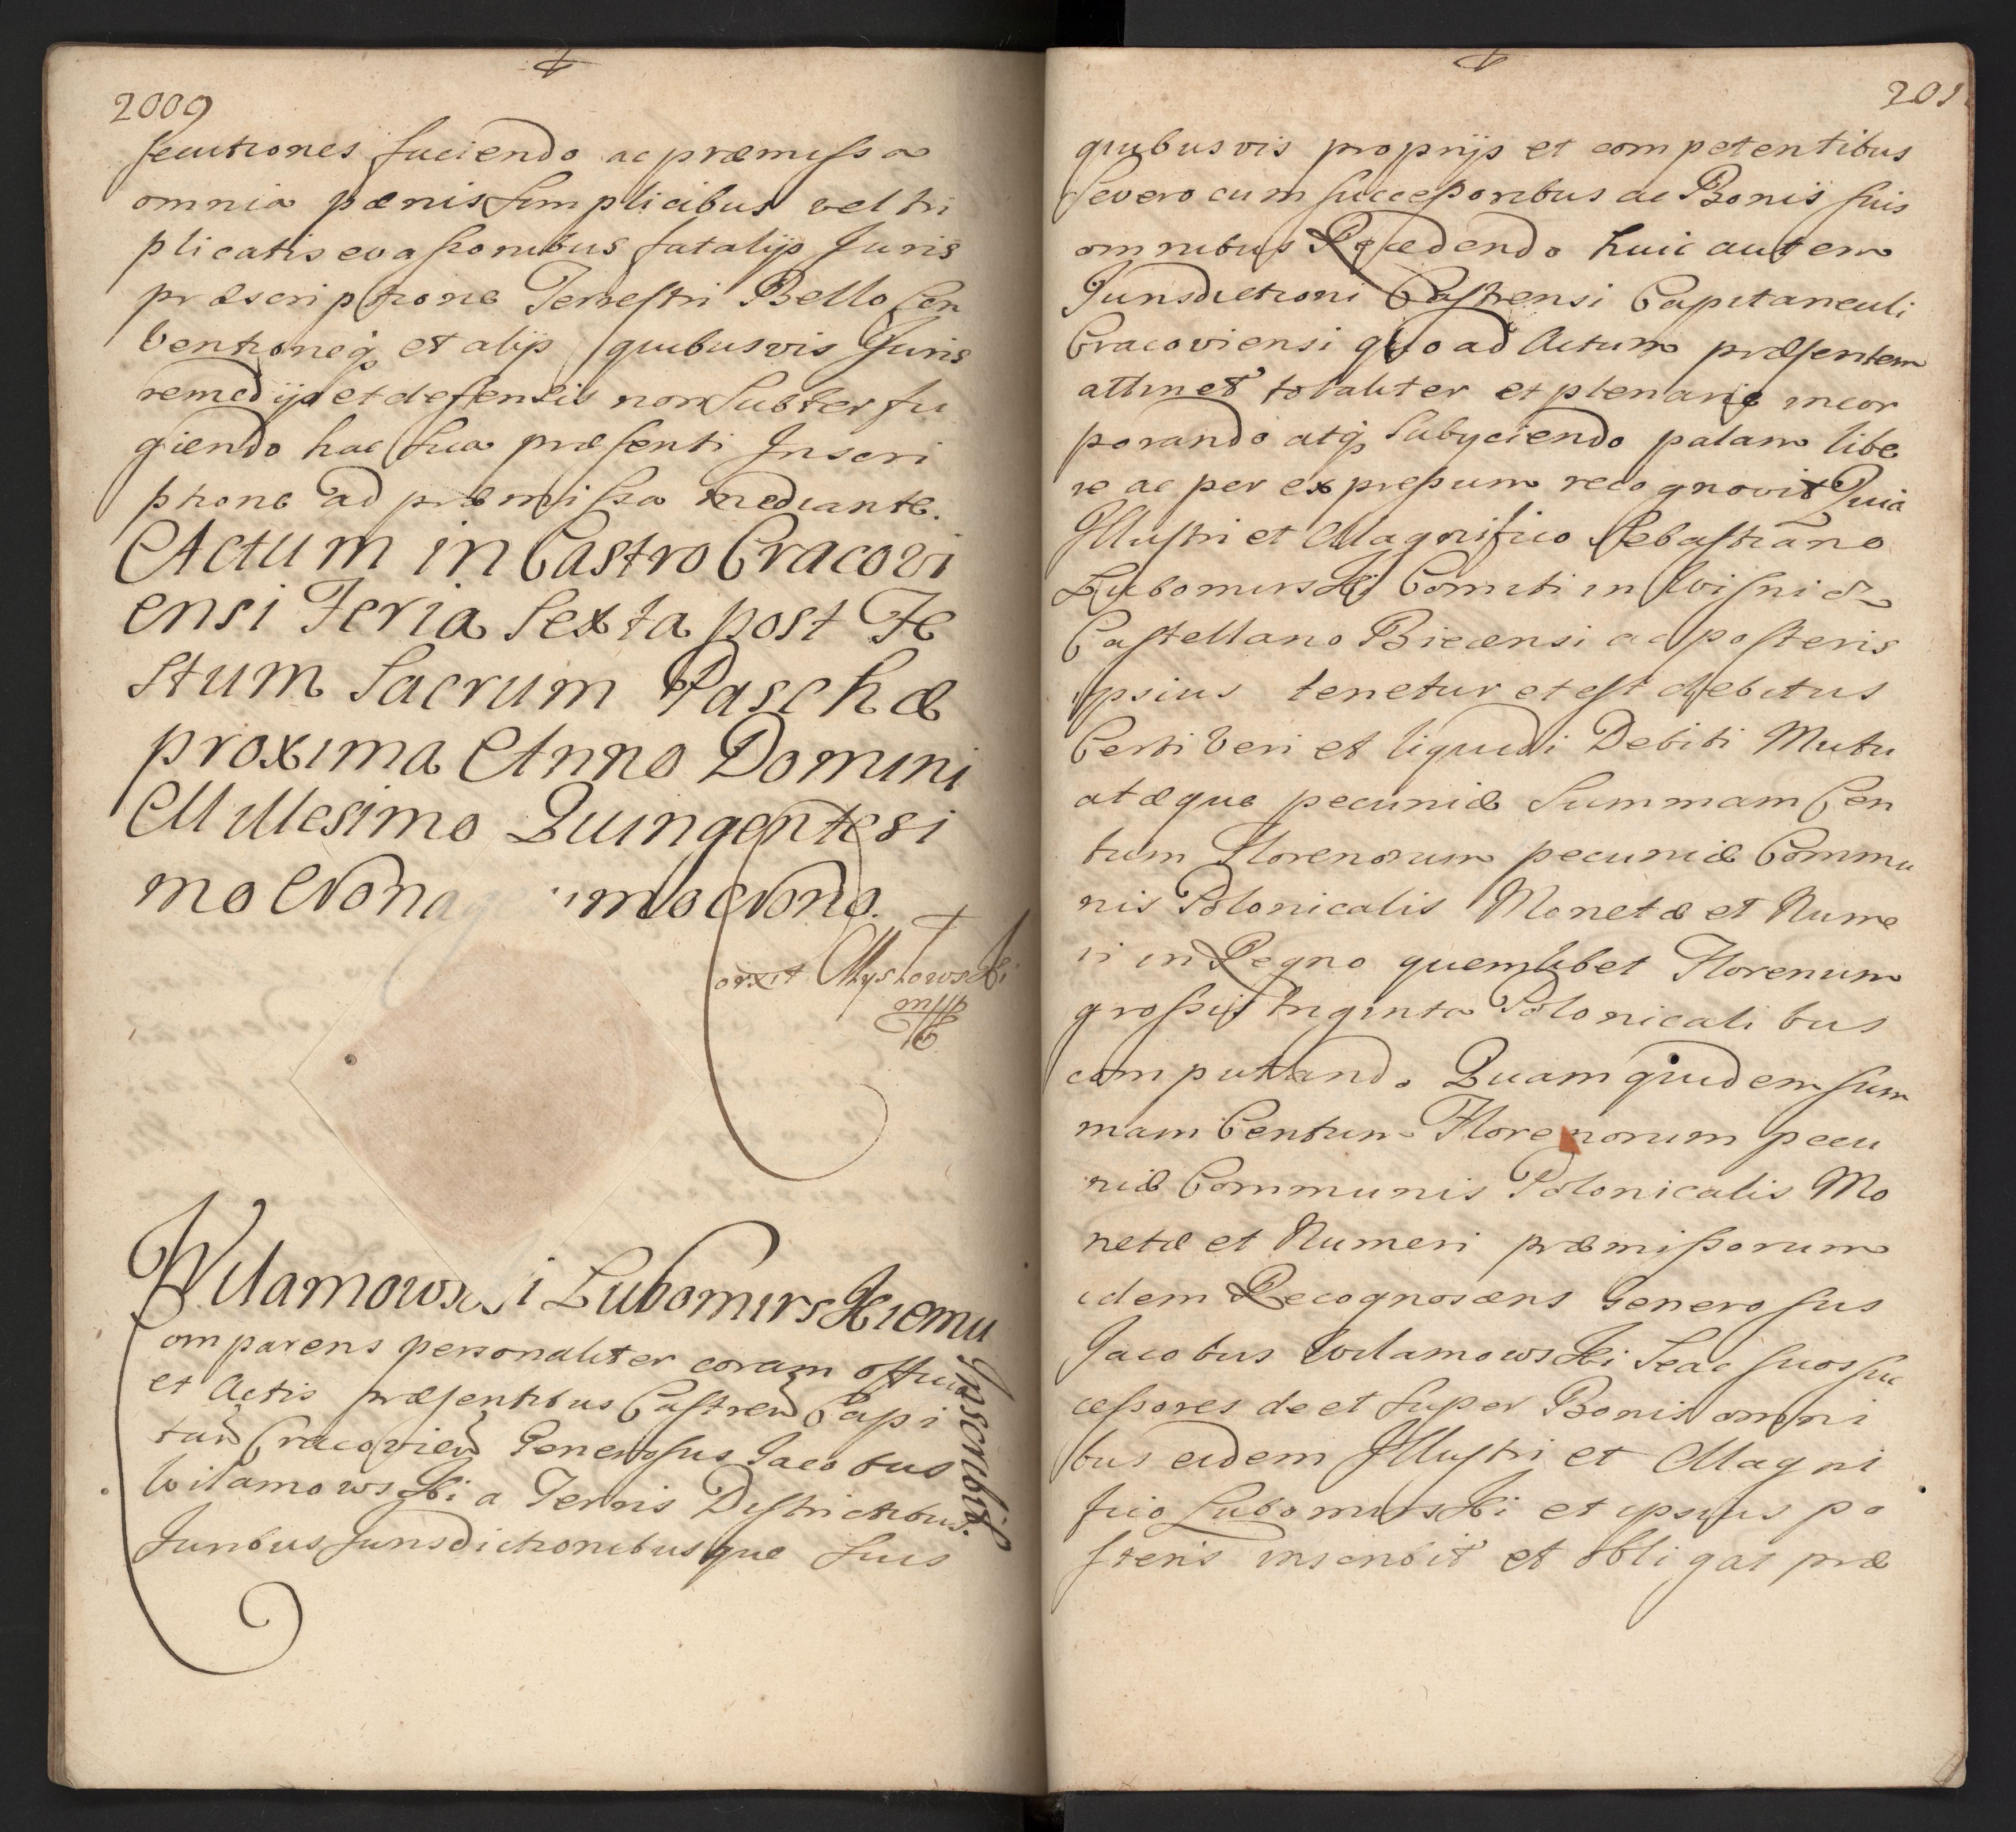 2009
secutiones faciendo ac præmissa
omnia pænis simplicibus vel tri
plicatis evasionibus fatalijs Juris
præscriptione Terrestri Bello Con
ventioneq; et alijs quibusvis Juris
remedijs et defensis non subterfu
giendo hac sua præsenti Inscri
ptione ad præmissa mediante.
Actum in Castro Cracovi
ensi Feria Sexta post Fe
stum Sacrum Paschæ
proxima Anno Domini
Millesimo Quingentesi
mo Nonag imo Nono.
Myslowski
Wilamows i Lubomirskiemu
Inscribit
omparens personaliter coram officio
et Actis præsentibus Castren Capi
tan Cracovien Generosus Jacobus
Wilamowski a Terris Districtibus
Juribus Jurisdictionibusque suis
201
quibusvis proprijs et competentibus
se vero cum successoribus ac Bonis suis
omnibus Recedendo huic autem
Jurisdictioni Castrensi Capitaneali
Cracoviensi quo ad Actum præsentem
attinet totaliter et plenarie incor
porando atq; subyciendo palam libe
re ac per expressum recognovit Quia
Illustri et Magnifico Sebastiano
Lubomirski Comiti in Wisnicz
Castellano Biecensi ac posteris
ipsius tenetur et est debitus
Certi Veri et liquidi Debiti Mutu
atæque pecuniæ Summam Cen
tum Florenorum pecuniæ Commu
nis Polonicalis Monetæ et Nume
ri in Regno quemlibet Florenum
grossis triginta Polonicalibus
computando. Quam quidem sum
mam Centum Florenorum pecu
niæ Communis Polonicalis Mo
netæ et Numeri præmissorum
idem Recognoscens Generosus
Jacobus Wilamowski Se ac suos suc
cessores de et super Bonis omni
bus eidem Illustri et Magni
fico Lubomirski et ipsius po
steris inscribit et obligat præ